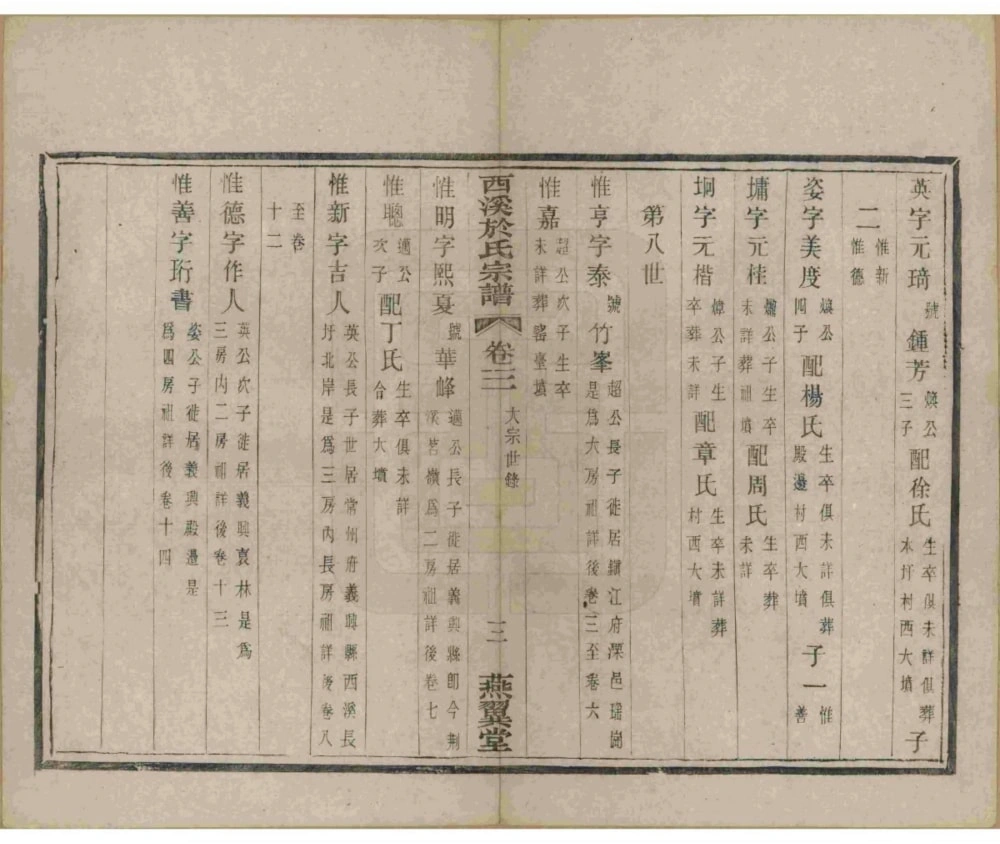 英字元琦號鍾芳煥公三子配徐氏生卒俱未詳俱葬水圩村西大墳子
二惟新惟德
姿字美度煥公四子配楊氏生卒俱未詳俱葬殿邊村西大墳子一惟善
墉字元桂公子生卒未詳葬祖墳配周氏生卒葬未詳
坰字元楷煒公子生卒葬未詳配章氏生卒未詳葬村西大墳
第八世
惟亨字泰號竹峯超公長子徙居鎮江府溧邑瑞崗是為大房祖詳後卷三至卷六
惟嘉超公次子生卒未詳葬窰墳
西溪於氏宗譜 卷二 大宗世錄 三 燕翼堂
惟明字熙夏號華峰適公長子徙居義興縣即今荆溪茗嶺為二房祖詳後卷七
惟聰適公次子配丁氏生卒俱未詳合葬大墳
惟新字吉人英公長子世居常州府義興縣西溪長圩北岸是為三房內長房祖詳後卷八
至卷十二
惟德字作人英公次子徙居義興袁林是為三房內二房祖詳後卷十三
惟善字珩書姿公子徙居義興殿邊是為四房祖詳後卷十四